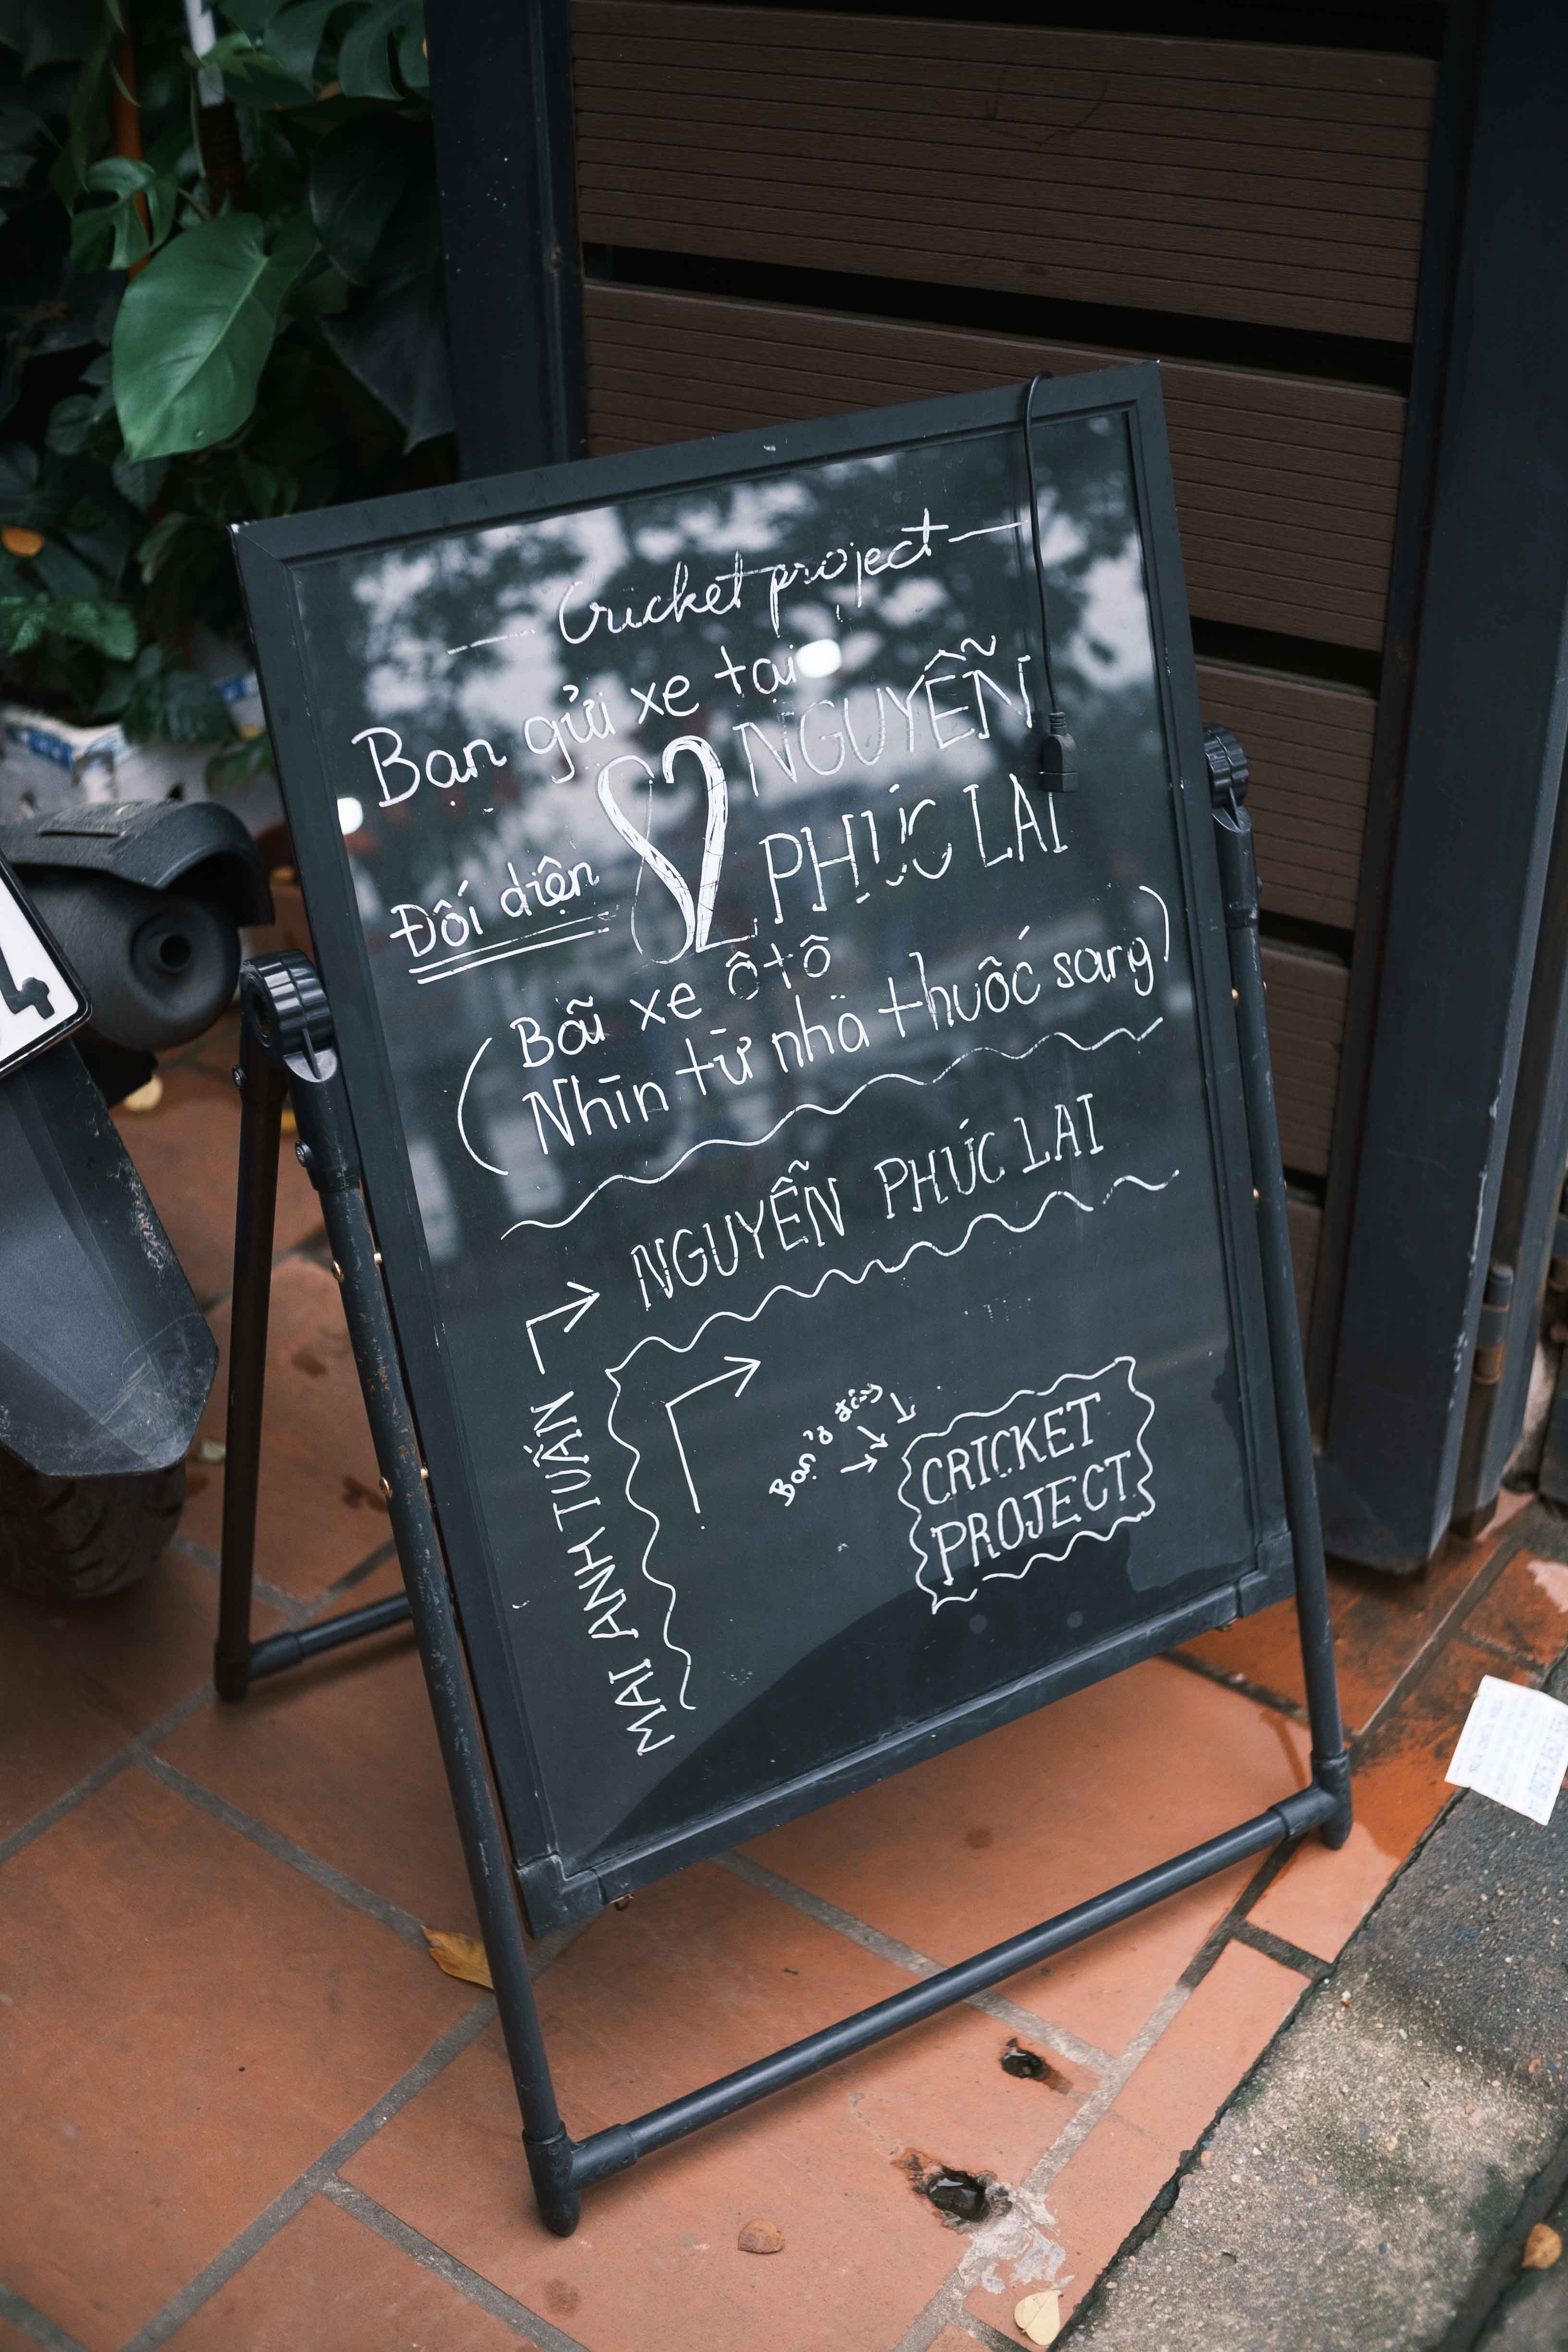 Cricket project
Bạn gửi xe tại
Đối diện 82 NGUYỄN PHÚC LAI
(Bãi xe ôtô
Nhìn từ nhà thuốc sang)
NGUYỄN PHÚC LAI
MAI ANH TUẤN
Bạn ở đây
CRICKET
PROJECT
4